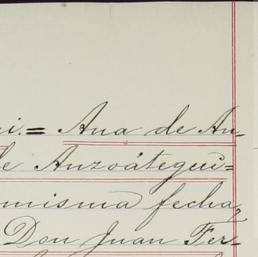 ui.= Ana de An-
de Anzoátegui=
misma fecha,
Don Juan Fer-